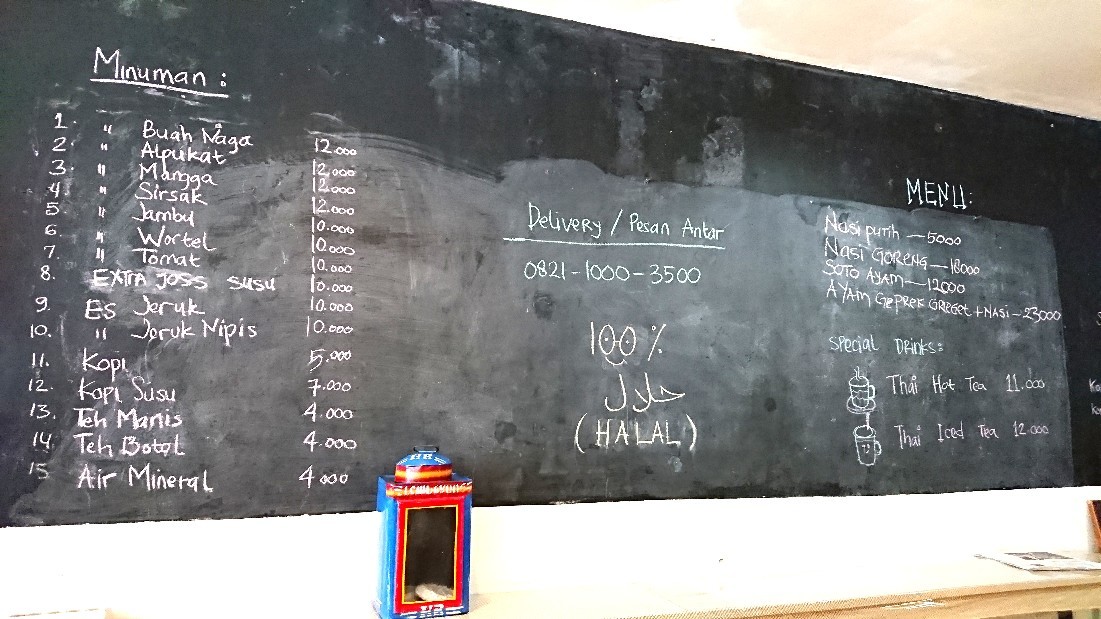 Minuman :
1. " Buah Naga 12.000
2. " Alpukat 12.000
3. " Mangga 12.000
4. " Sirsak 12.000
5. " Jambu 10.000
6. " Wortel 10.000
7. " Tomat 10.000
8. EXTRA JOSS SUSU 10.000
9. Es Jeruk 10.000
10. " Jeruk Nipis 10.000
11. Kopi 5.000
12. Kopi Susu 7.000
13. Teh Manis 4.000
14. Teh Botol 4.000
15 Air Mineral 4.000
Delivery / Pesan Antar
0821-1000-3500
100%
حلال
(HALAL)
MENU:
Nasi putih — 5000
Nasi GORENG — 18000
SOTO AYAM — 12000
AYAM GEPREK GREGET + NASI - 23000
Special DRINKS:
Thai Hot Tea 11.000
Thai Iced Tea 12.000